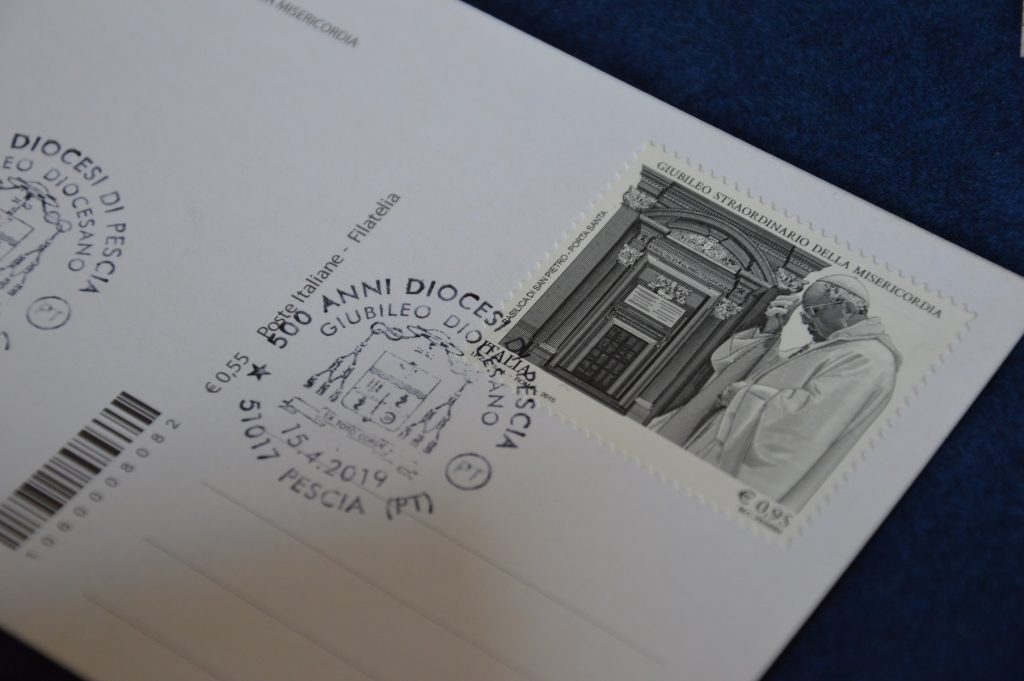 MISERICORDIA
DIOCESI DI PESCIA
DIOCESANO
PT
Poste Italiane - Filatelia
€ 0,55
★ 500 ANNI DIOCESI DI PESCIA
GIUBILEO DIOCESANO
PT
15.4.2019
51017 PESCIA (PT)
GIUBILEO STRAORDINARIO DELLA MISERICORDIA
BASILICA DI SAN PIETRO - PORTA SANTA
ITALIA
2015
€ 0,95
108000808082